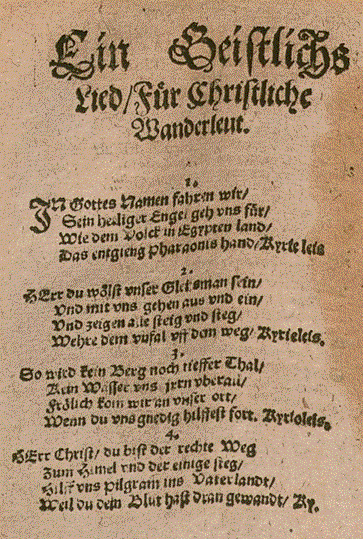 Ein Geistlichs
Lied/Für Christliche
Wanderleut.
1.
IN Gottes Namen fahren wir/
Sein heiliger Engel geh vns für/
Wie dem Volck in Egypten land/
Das entgieng Pharaonis hand/Kyrie leis
2.
HErr du wölst vnser Gleitsman sein/
Vnd mit vns gehen aus vnd ein/
Vnd zeigen alle steig vnd steg/
Wehre dem vnfal vff dem weg/ Kyrieleis.
3.
So wird kein Berg noch tieffer Thal/
Kein Wasser vns jrrn vberal/
Frölich kom wir an vnser ort/
Wenn du vns gnedig hilffest fort. Kyrioleis.
4.
HErr Christ/ du bist der rechte Weg
Zum Himel vnd der einige steg/
Hilff vns Pilgram ins Vaterlandt/
Weil du dein Blut hast dran gewandt/ Ky.